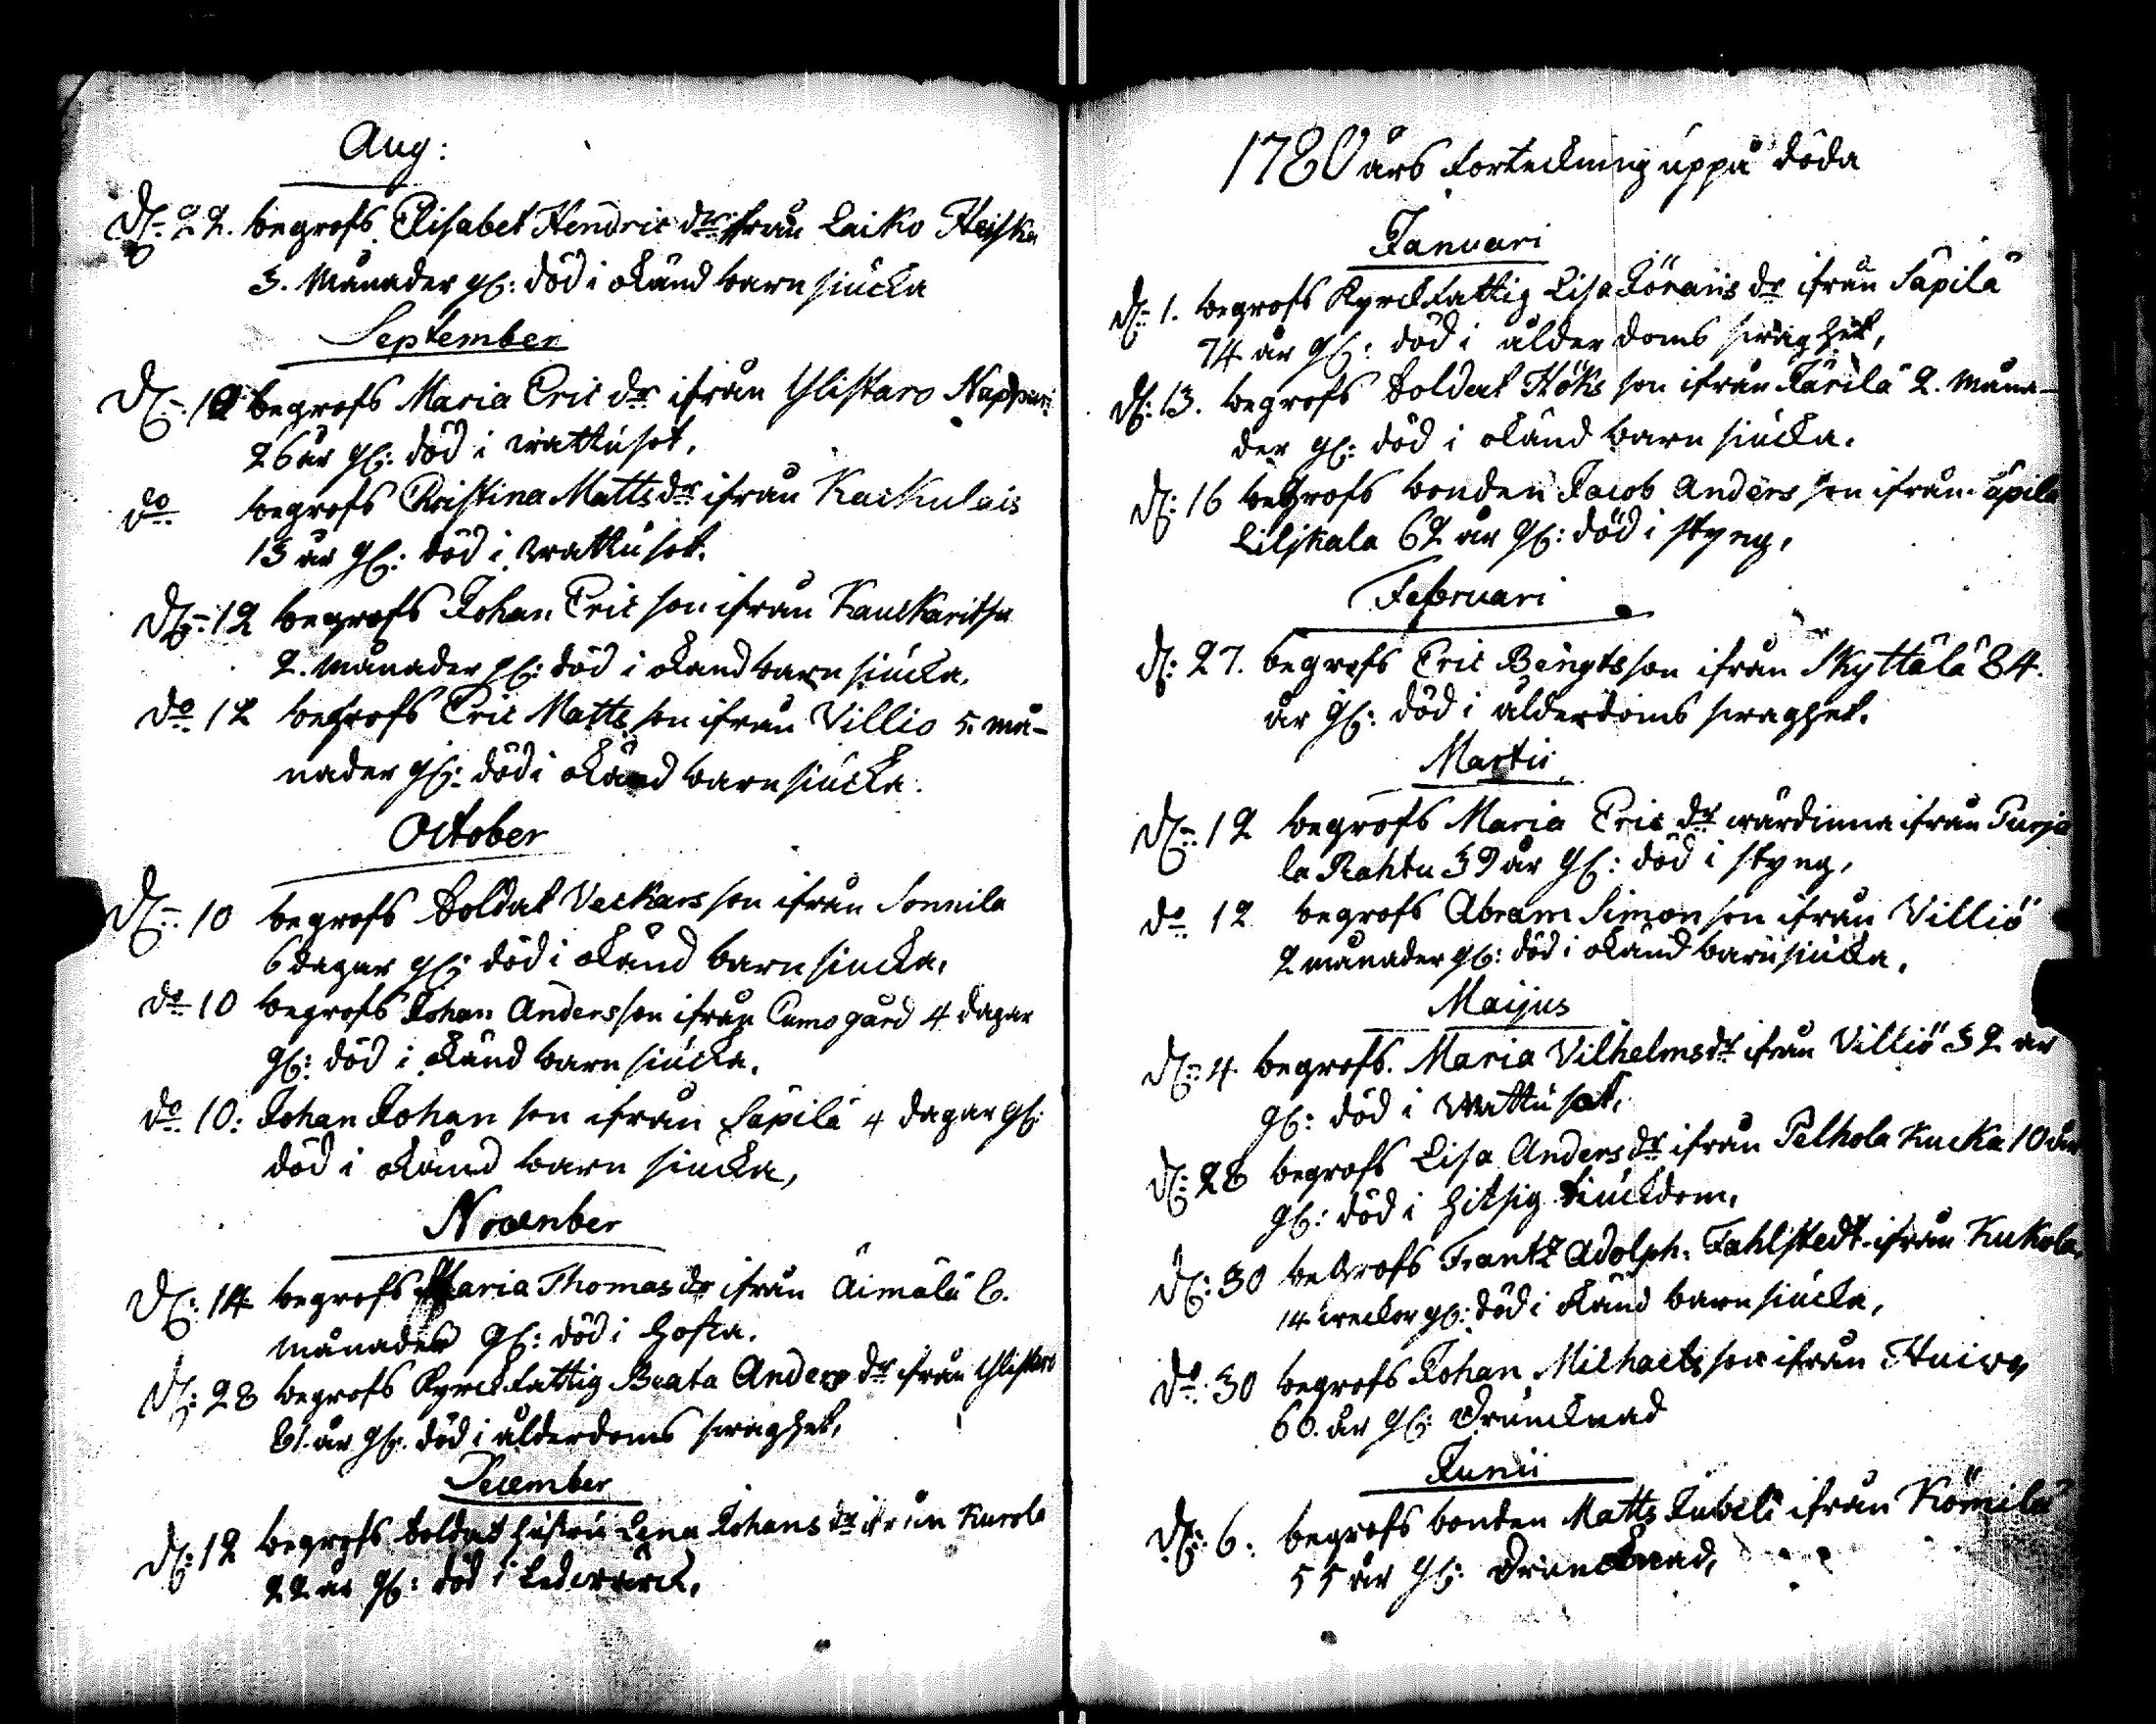 Aug:
D: 22. begrofs Elisabet Hendric dr ifrån Laiko Heiska
3. Månader gl: död i okänd barnsiucka
September
D: 12 begrofs Maria Eric dr ifrån Ylistaro Nappari
26 år gl: död i wattusot.
do begrofs Christina Matts dr ifrån Kaskulais
13 år gl: död i wattusot.
D: 12 begrofs Johan Eric son ifrån
2. månader gl: död i okand barn siucka.
do 12 begrofs Eric Matts son ifrån Villio 5 må-
nader gl: död i okänd barnsiucka.
October
D: 10 begrofs Soldat Veckars son ifrån Sonnila
6 dagar gl: död i okänd barn siucka,
do 10 begrofs Johan Andersson ifrån Cumo gård 4 dagar
gl: död i okänd barn siucka.
do 10: Johan Johan son ifrån Säpilä 4 dagar gl:
död i okänd barn siucka,
November
D: 14 begrofs Maria Thomas dr ifrån Äimälä 6.
månader gl: död i hosta.
D: 28 begrofs Kyrckfattig Beata Anders dr ifrån Ylistaro
81. år gl. död i ålderdoms swaghet,
December
D: 12 begrofs Soldat hustru Lena Johans dr ifrån Kurola
22 år gl: död i Ledwärck,
1780 års Forteckning uppå döda
Januari
D: 1. begrofs Kyrckfattig Lisa Jörans dr ifrån Säpilä
74 år gl: död i ålderdoms swaghet,
D: 13. begrofs Soldat Höks son ifrån Järilä 2. måna-
der gl: död i okänd barn siucka.
D: 16 begrofs bonden Jacob Anders son ifrån Säpilä
Liljkala 62 år gl: död i styng,
Februari
D: 27. begrofs Eric Bengts son ifrån Skyttälä 84.
år gl: död i ålderdoms swaghet.
Martii
D: 12 begrofs Maria Eric dr wärdinna ifrån Purja
la Rahtu 39 år gl: död i styng,
do 12 begrofs Abram Simon son ifrån Villiö
2 månader gl: död i okänd barnsiucka,
Maijus
D: 4 begrofs. Maria Vilhelms dr ifrån Villiö 32 år
gl: död i Wattusot,
D: 28 begrofs Lisa Anders dr ifrån Pelhola Kucka 10 år
gl: död i hitsig siuckdom,
D: 30 begrofs Frantz Adolph: Fahlstedt ifrån Kukola,
14 weckor gl: död i okänd barnsiucka,
do: 30 begrofs Johan Michaels son ifrån
60. år gl: Drunknad
Junii
D: 6. begrofs bonden Matts Jubels ifrån Kömilä
55 år gl: Drunknad,